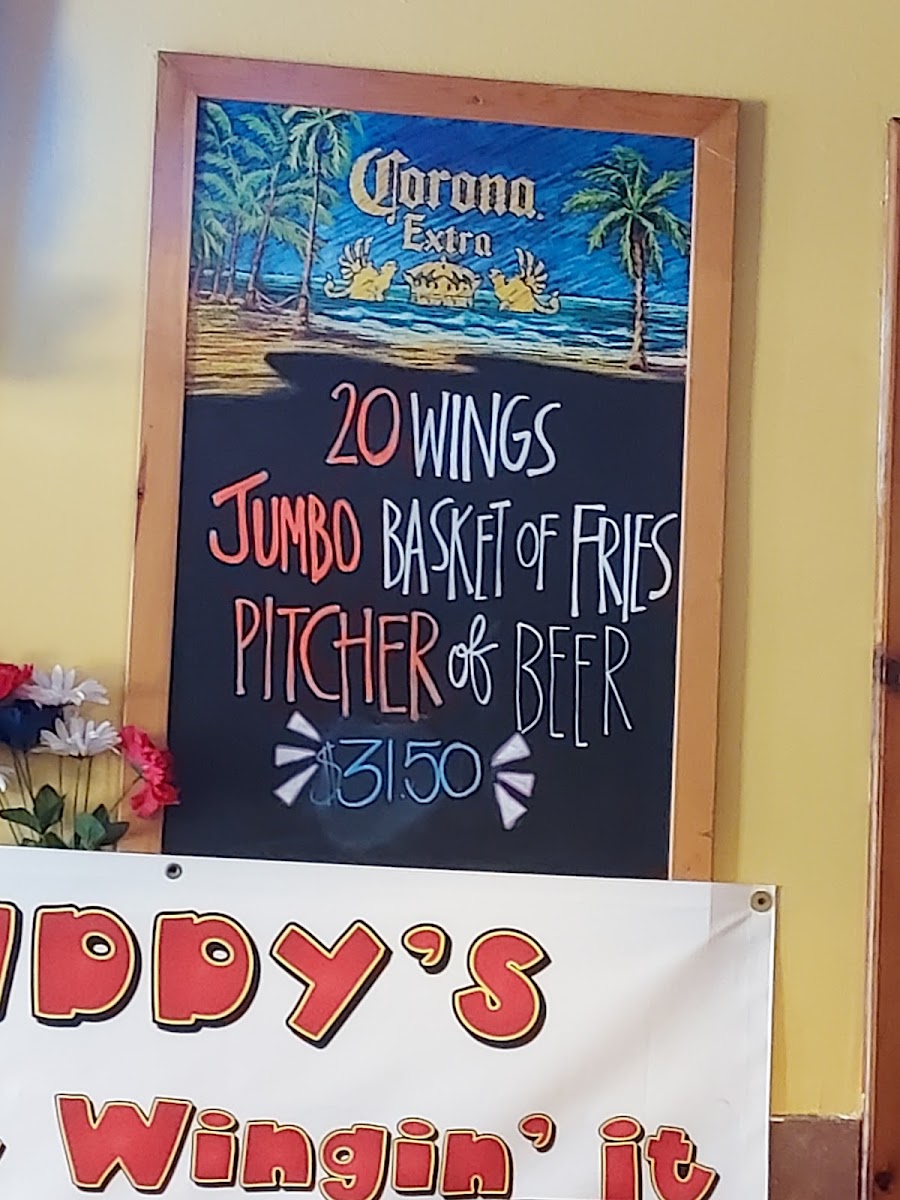 Corona
Extra
20 WINGS
JUMBO BASKET OF FRIES
PITCHER of BEER
$31.50
DDY'S
Wingin' it